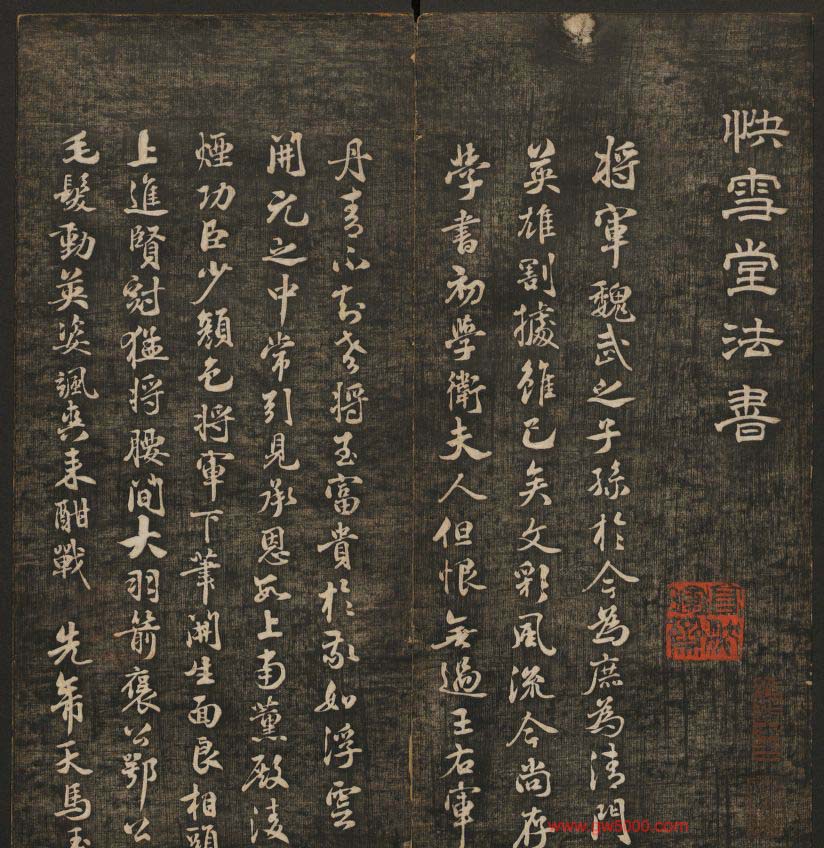 快雪堂法書
将軍魏武之子孫於今為庶為清門
英雄割據雖已矣文彩風流今尚存
学書初學衛夫人但恨無過王右軍
丹青不知老将至富貴於我如浮雲
開元之中常引見承恩数上南薰殿凌
煙功臣少顏色将軍下筆開生面良相頭
上進賢冠猛将腰間大羽箭褒公鄂公
毛髮動英姿颯爽来酣戰 先帝天馬玉
www.gw5000.com